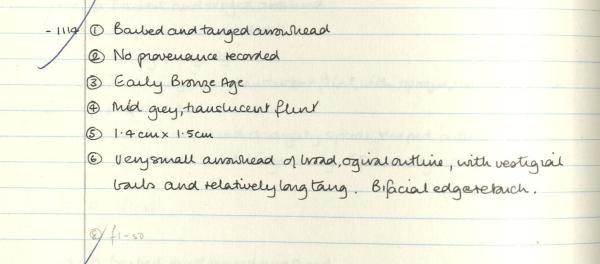 - 1114 ① Barbed and tanged arrowhead
② No provenance recorded
③ Early Bronze Age
④ Mid grey, translucent flint
⑤ 1.4cm x 1.5cm
⑥ Very small arrowhead of broad, ogival outline, with vestigial
barbs and relatively long tang. Bifacial edge retouch.
⑧ f1-50